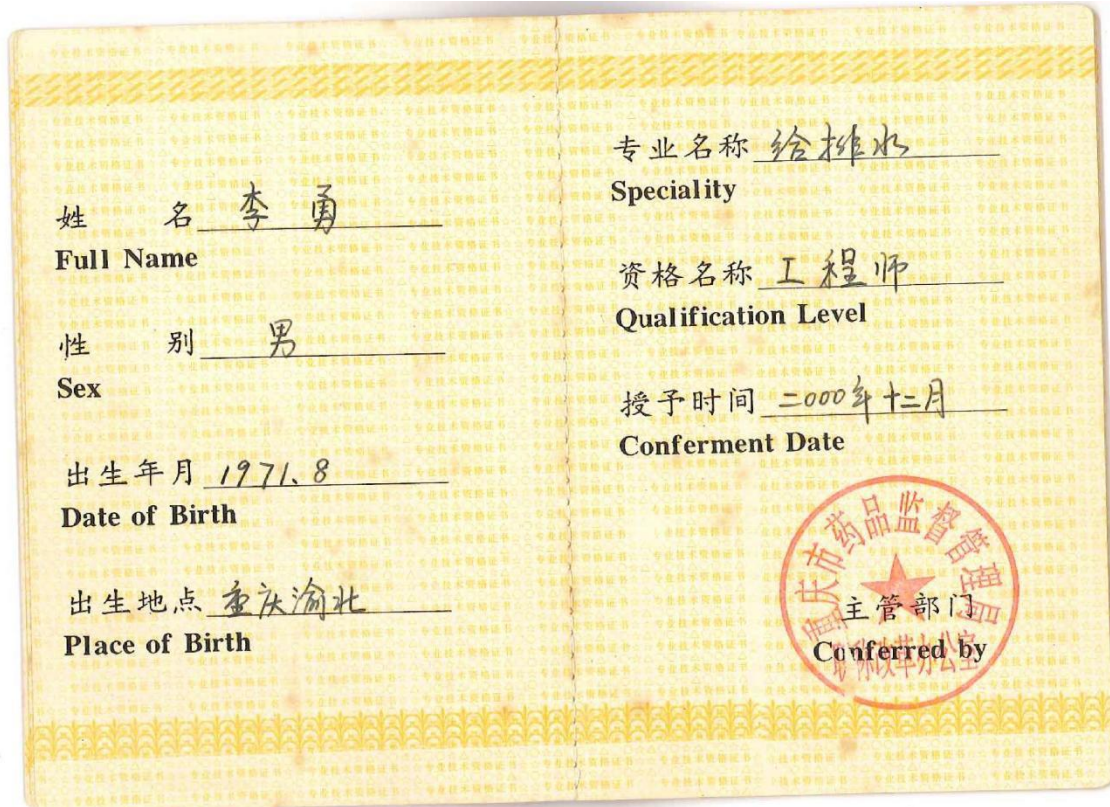 姓 名 李 勇
Full Name
性 别 男
Sex
出生年月 1971.8
Date of Birth
出生地点 重庆渝北
Place of Birth
专业名称 给排水
Speciality
资格名称 工程师
Qualification Level
授予时间 二000年十二月
Conferment Date
重庆市药品监督管理局
职称改革办公室
主管部门
Conferred by